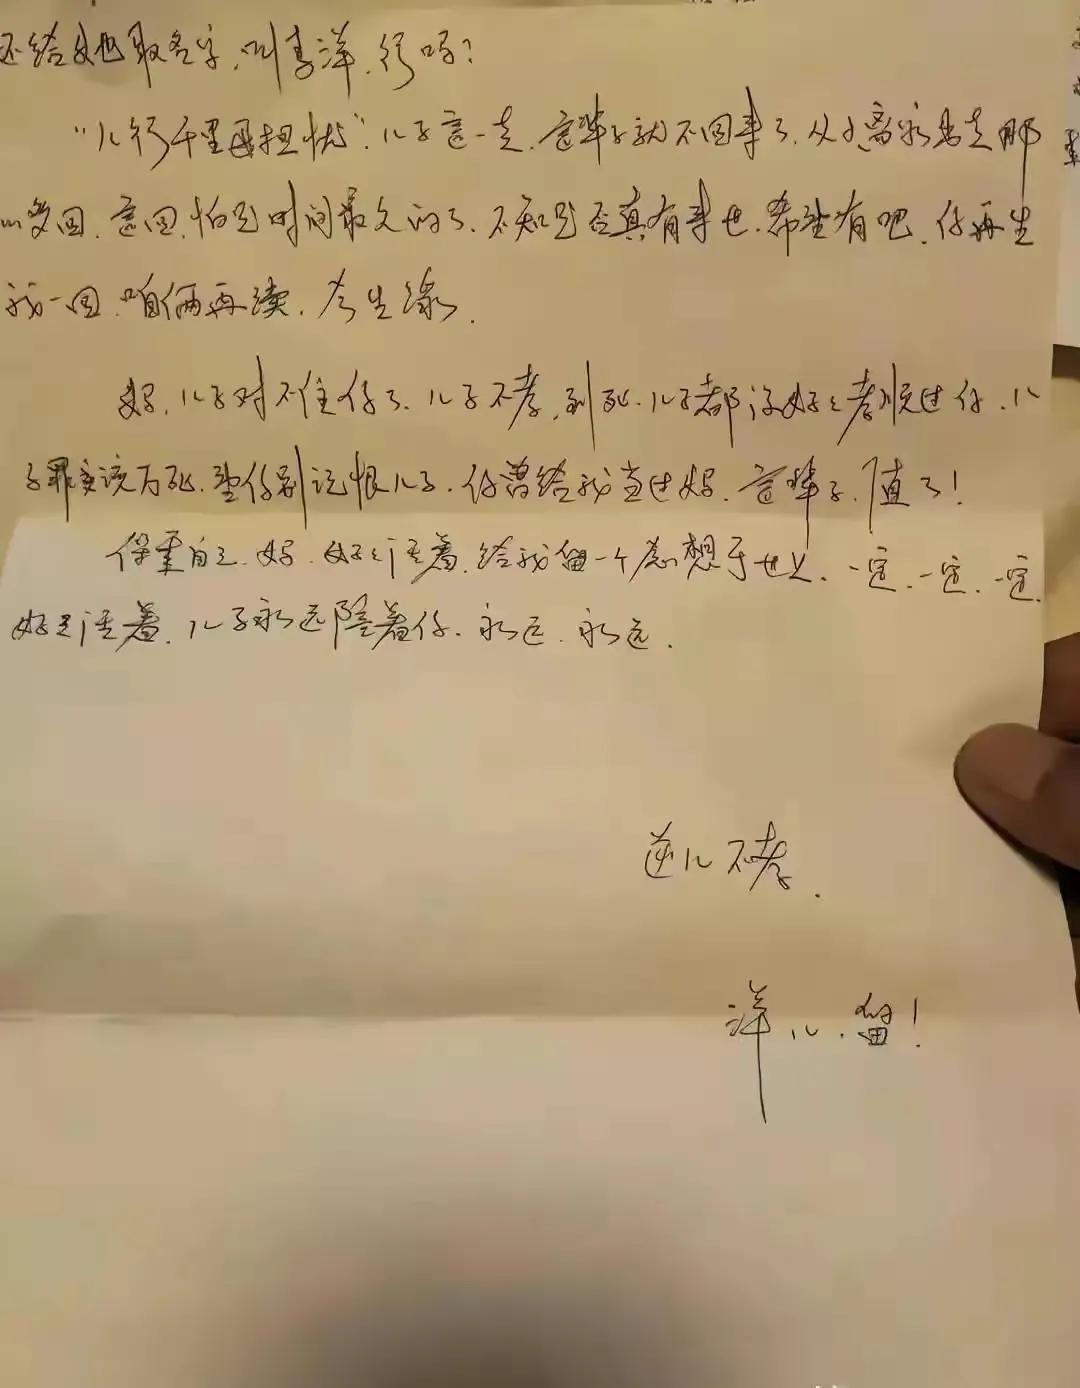 还给她取名字，叫李洋，行吗？
“儿行千里母担忧”，儿子这一走，这辈子就不回来了，从小离家出走那
么多回，这回，怕是时间最久的了，不知是否真有来世，希望有吧，你再生
我一回，咱俩再续，今生缘。
妈，儿子对不住你了，儿子不孝，到死，儿子都没好好孝顺过你，儿
子罪实该万死，望你别记恨儿子，你曾给我当过妈，这辈子，值了！
保重自己，妈，好好活着，给我留一个念想于世上，一定，一定，一定，
好好活着，儿子永远陪着你，永远，永远。
逆儿不孝。
洋儿，留！